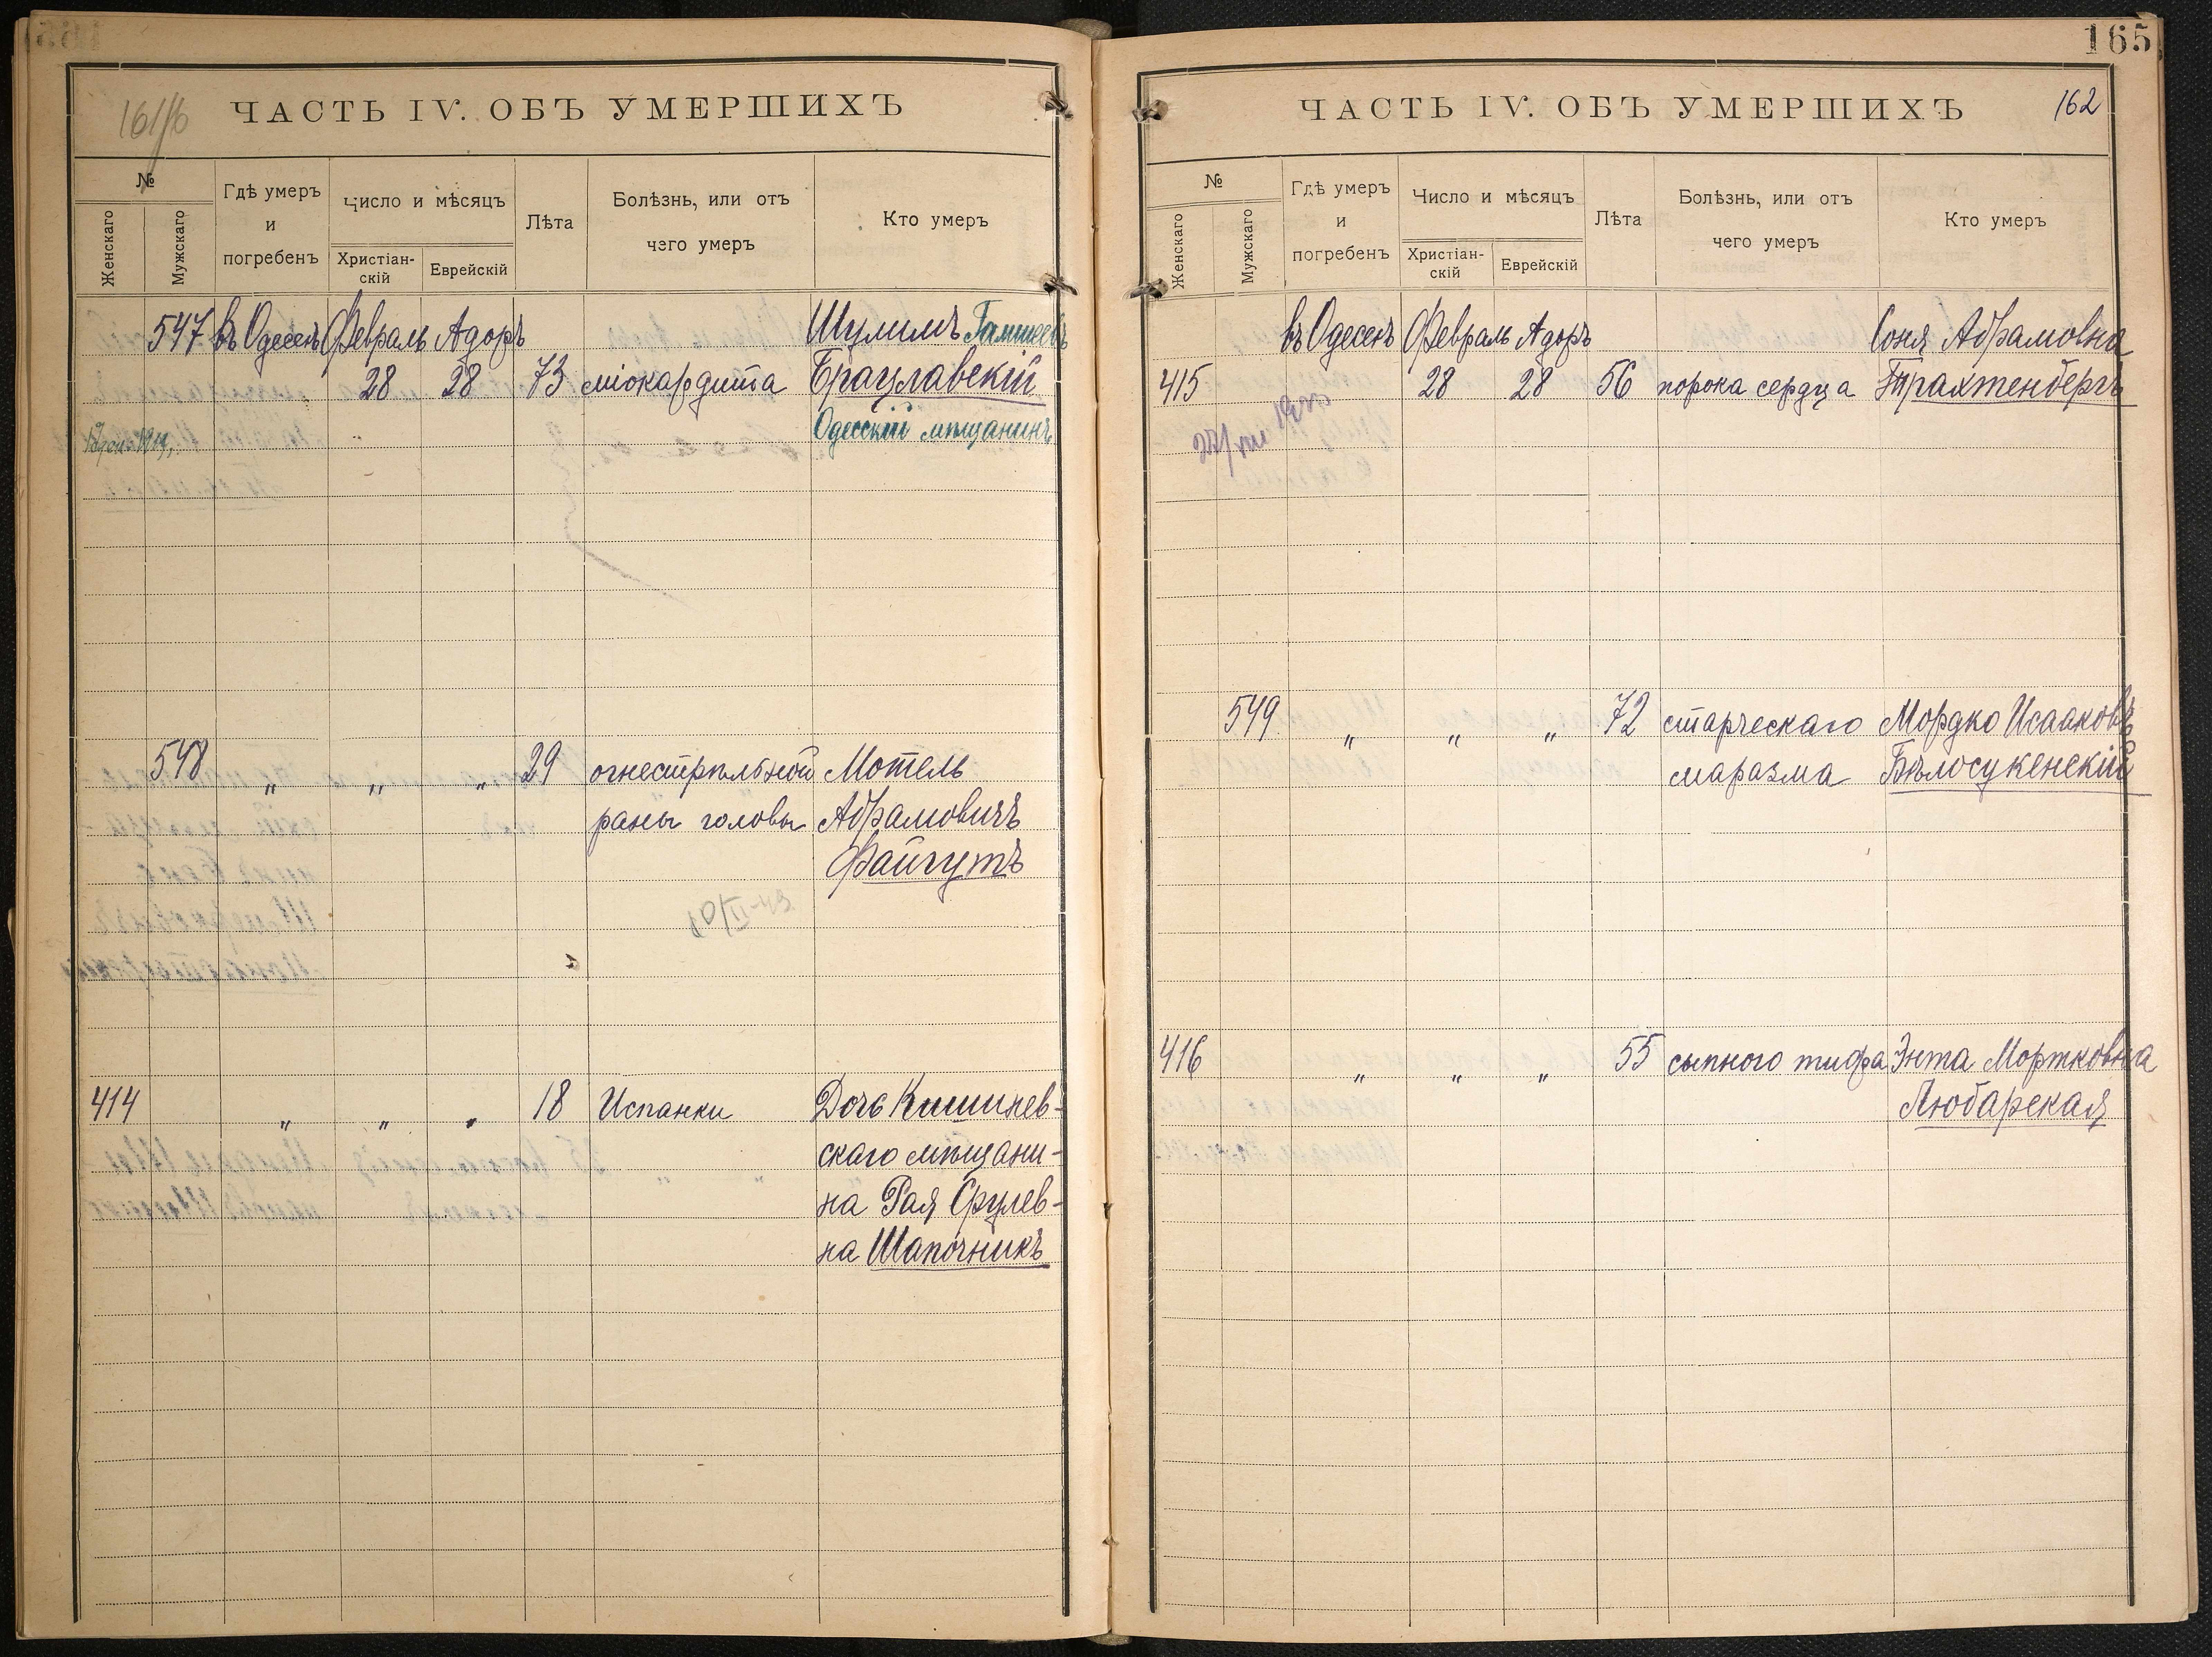 165
161/6
ЧАСТЬ IV. ОБЪ УМЕРШИХЪ
№
Женскаго
Мужскаго
Гдѣ умеръ
и
погребенъ
Число и мѣсяцъ
Христіан-
скій
Еврейскій
Лѣта
Болѣзнь, или отъ
чего умеръ
Кто умеръ
547 въ Одессѣ Февраль Адоръ Шулимъ
28 28 73 міокардита Брацлавскій
Одесскій мѣщанинъ
548 " " " 29 огнестрѣльной Мотель
раны головы Абрамовичъ
Файгутъ
414 " " " 18 Испанки Дочь Кишинев-
скаго мѣщани-
на Рая Срулев-
на Шапочникъ
ЧАСТЬ IV. ОБЪ УМЕРШИХЪ
162
№
Женскаго
Мужскаго
Гдѣ умеръ
и
погребенъ
Число и мѣсяцъ
Христіан-
скій
Еврейскій
Лѣта
Болѣзнь, или отъ
чего умеръ
Кто умеръ
въ Одессѣ Февраль Адоръ Соня Абрамовна
415 28 28 56 порока сердца Трахтенбергъ
549 " " " 72 старческаго Мордко Исааковъ
маразма Бѣлосукенскій
416 " " " 55 сыпного тифа Энта Мортковна
Любарская